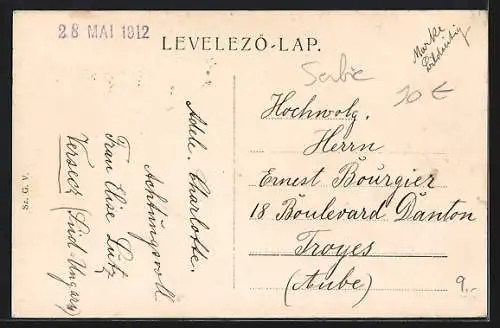 28 MAI 1912
LEVELEZŐ-LAP.
Marke
Serbie
20 €
Hochwolg.
Herrn
Ernest Bourgier
18 Boulevard Danton
Troyes
(Aube)
9.-
Adele. Charlotte.
Achtungsvoll
Frau Elise Lutz
Versecz (Süd-Ungarn)
Sz. G. V.